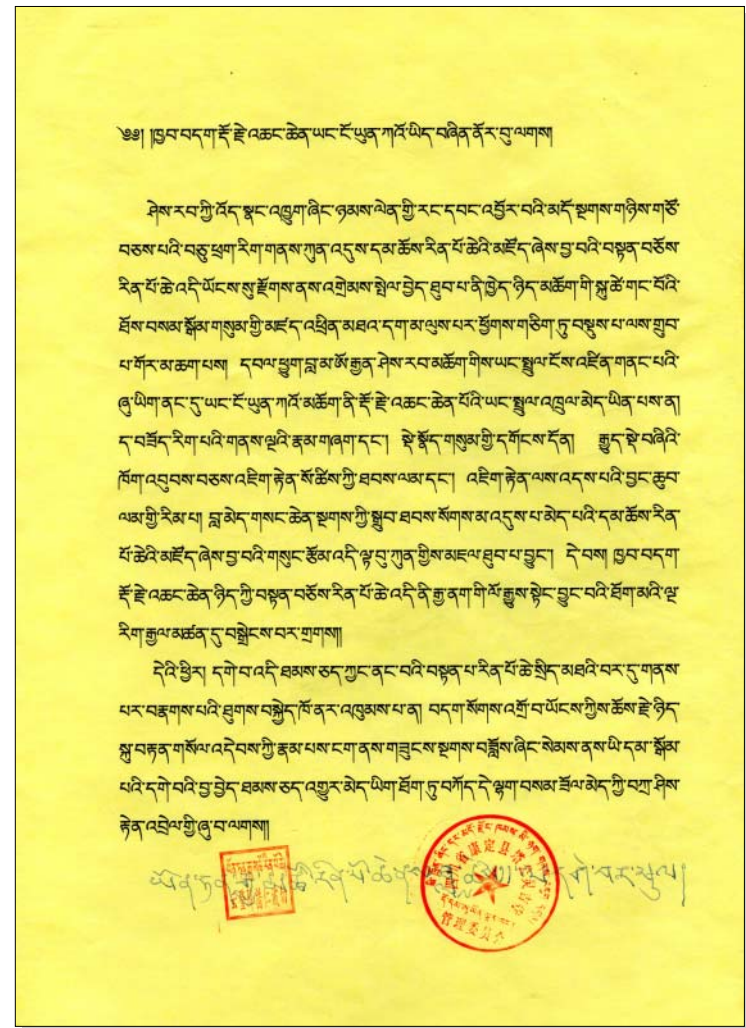 ༄༅། །ཁྱབ་བདག་རྡོ་རྗེ་འཆང་ཆེན་ཡང་ངོ་ཡུན་ཀའོ་ཡིད་བཞིན་ནོར་བུ་ལགས།
ཤེས་རབ་ཀྱི་འོད་སྣང་འཁྲུག་ཞིང་ཉམས་ལེན་གྱི་རང་དབང་འབྱོར་བའི་མདོ་སྔགས་གཉིས་གཙོ་
བཅས་པའི་བཅུ་ཕྲག་རིག་གནས་ཀུན་འདུས་དམ་ཆོས་རིན་པོ་ཆེའི་མཛོད་ཞེས་བྱ་བའི་བསྟན་བཅོས་
རིན་པོ་ཆེ་འདི་ཡོངས་སུ་རྫོགས་ནས་འགྲེམས་སྤེལ་བྱེད་ཐུབ་པ་ནི་ཁྱེད་ཉིད་མཆོག་གི་སྐུ་ཚེ་གང་བོའི་
ཐོས་བསམ་སྒོམ་གསུམ་གྱི་མཛད་འཕྲིན་མཐའ་དག་མ་ལུས་པར་ཕྱོགས་གཅིག་ཏུ་བསྡུས་པ་ལས་གྲུབ་
པ་གོར་མ་ཆག་པས། དཔལ་ཕྱུག་བླ་མ་ཨོ་རྒྱན་ཤེས་རབ་མཆོག་གིས་ཡང་སྤྲུལ་ངོས་འཛིན་གནང་པའི་
ཞུ་ཡིག་ནང་དུ་ཡང་ངོ་ཡུན་ཀའོ་མཆོག་ནི་རྡོ་རྗེ་འཆང་ཆེན་པོའི་ཡང་སྤྲུལ་འཁྲུལ་མེད་ཡིན་པས་ན།
ད་བཟོད་རིག་པའི་གནས་ལྔའི་རྣམ་གཞག་དང་། སྡེ་སྣོད་གསུམ་གྱི་དགོངས་དོན། རྒྱུད་སྡེ་བཞིའི་
ཁོག་འབུབས་བཅས་འཇིག་རྟེན་སོ་ཚིས་ཀྱི་ཐབས་ལམ་དང་། འཇིག་རྟེན་ལས་འདས་པའི་བྱང་ཆུབ་
ལམ་གྱི་རིམ་པ། བླ་མེད་གསང་ཆེན་སྔགས་ཀྱི་སྒྲུབ་ཐབས་སོགས་མ་འདུས་པ་མེད་པའི་དམ་ཆོས་རིན་
པོ་ཆེའི་མཛོད་ཞེས་བྱ་བའི་གསུང་རྩོམ་འདི་ལྟ་བུ་ཀུན་གྱིས་མཇལ་ཐུབ་པ་བྱུང་། དེ་བས། ཁྱབ་བདག་
རྡོ་རྗེ་འཆང་ཆེན་ཉིད་ཀྱི་བསྟན་བཅོས་རིན་པོ་ཆེ་འདི་ནི་རྒྱ་ནག་གི་ལོ་རྒྱུས་སྟེང་བྱུང་བའི་ཐོག་མའི་ལྔ་
རིག་རྒྱལ་མཚན་དུ་བསྒྲེངས་བར་གྲགས།།
དེའི་ཕྱིར། དགེ་བ་འདི་ཐམས་ཅད་ཀྱང་ནང་བའི་བསྟན་པ་རིན་པོ་ཆེ་སྲིད་མཐའི་བར་དུ་གནས་
པར་བརྣགས་པའི་ཐུགས་བསྐྱེད་ཁོ་ནར་འཁུམས་པ་ན། བདག་སོགས་འགྲོ་བ་ཡོངས་ཀྱིས་ཆོས་རྗེ་ཉིད་
སྐུ་བརྟན་གསོལ་འདེབས་ཀྱི་རྣམ་པས་ངག་ནས་གཟུངས་སྔགས་བཟློས་ཞིང་སེམས་ནས་ཡི་དམ་སྒོམ་
པའི་དགེ་བའི་བྱ་བྱེད་ཐམས་ཅད་འགྱུར་མེད་ཡིག་ཐོག་ཏུ་བཀོད་དེ་ལྷག་བསམ་ཟོལ་མེད་ཀྱི་བཀྲ་ཤིས་
རྟེན་འབྲེལ་གྱི་ཞུ་བ་ལགས།།
省康定县
管理委员会